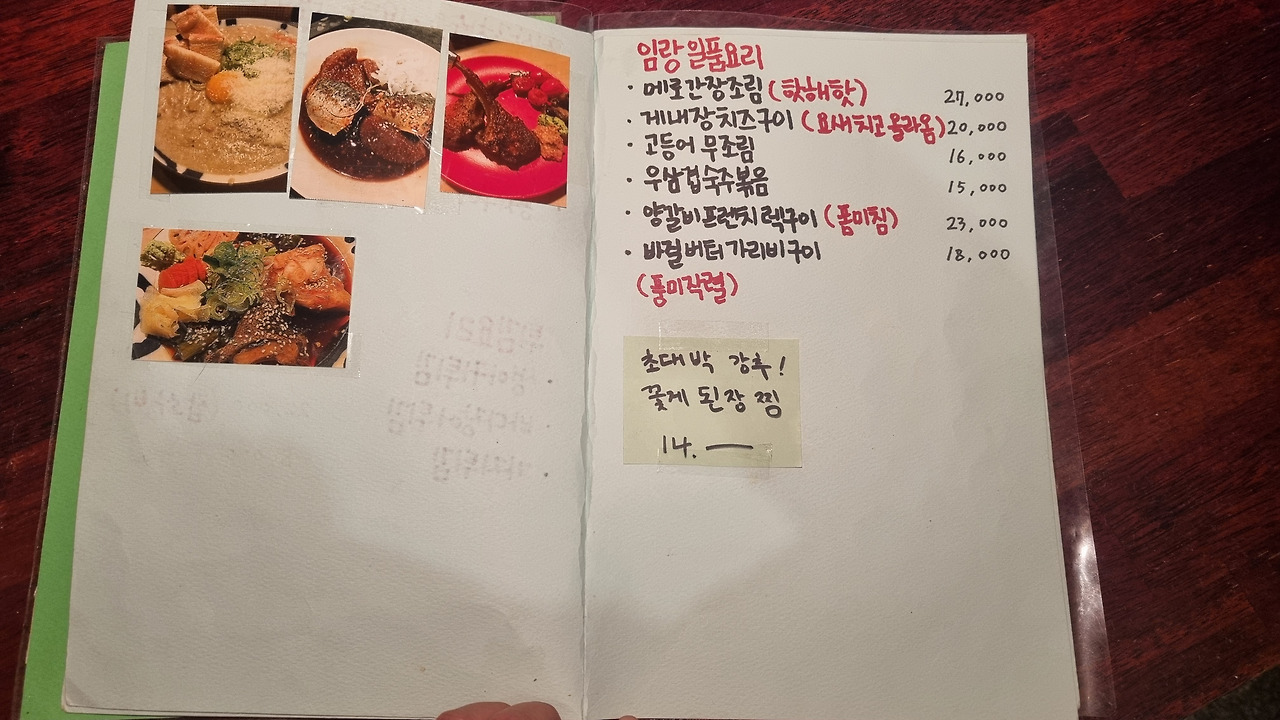 임랑 일품요리
· 메로간장조림 (핫해핫) 27,000
· 게내장치즈구이 (요새치고올라옴) 20,000
· 고등어 무조림 16,000
· 우삼겹숙주볶음 15,000
· 양갈비프렌치렉구이 (폼미침) 23,000
· 바질버터가리비구이 18,000
(풍미작렬)
초대박 강추!
꽃게 된장찜
14. —